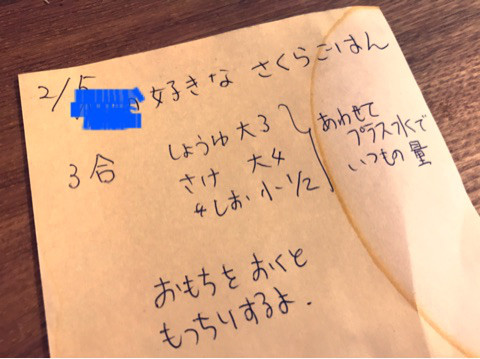 2/5
好きな さくらごはん
3合
しょうゆ 大3
さけ 大4
しお 小1/2
あわせて
プラス水で
いつもの量
おもちを おくと
もっちりするよ.